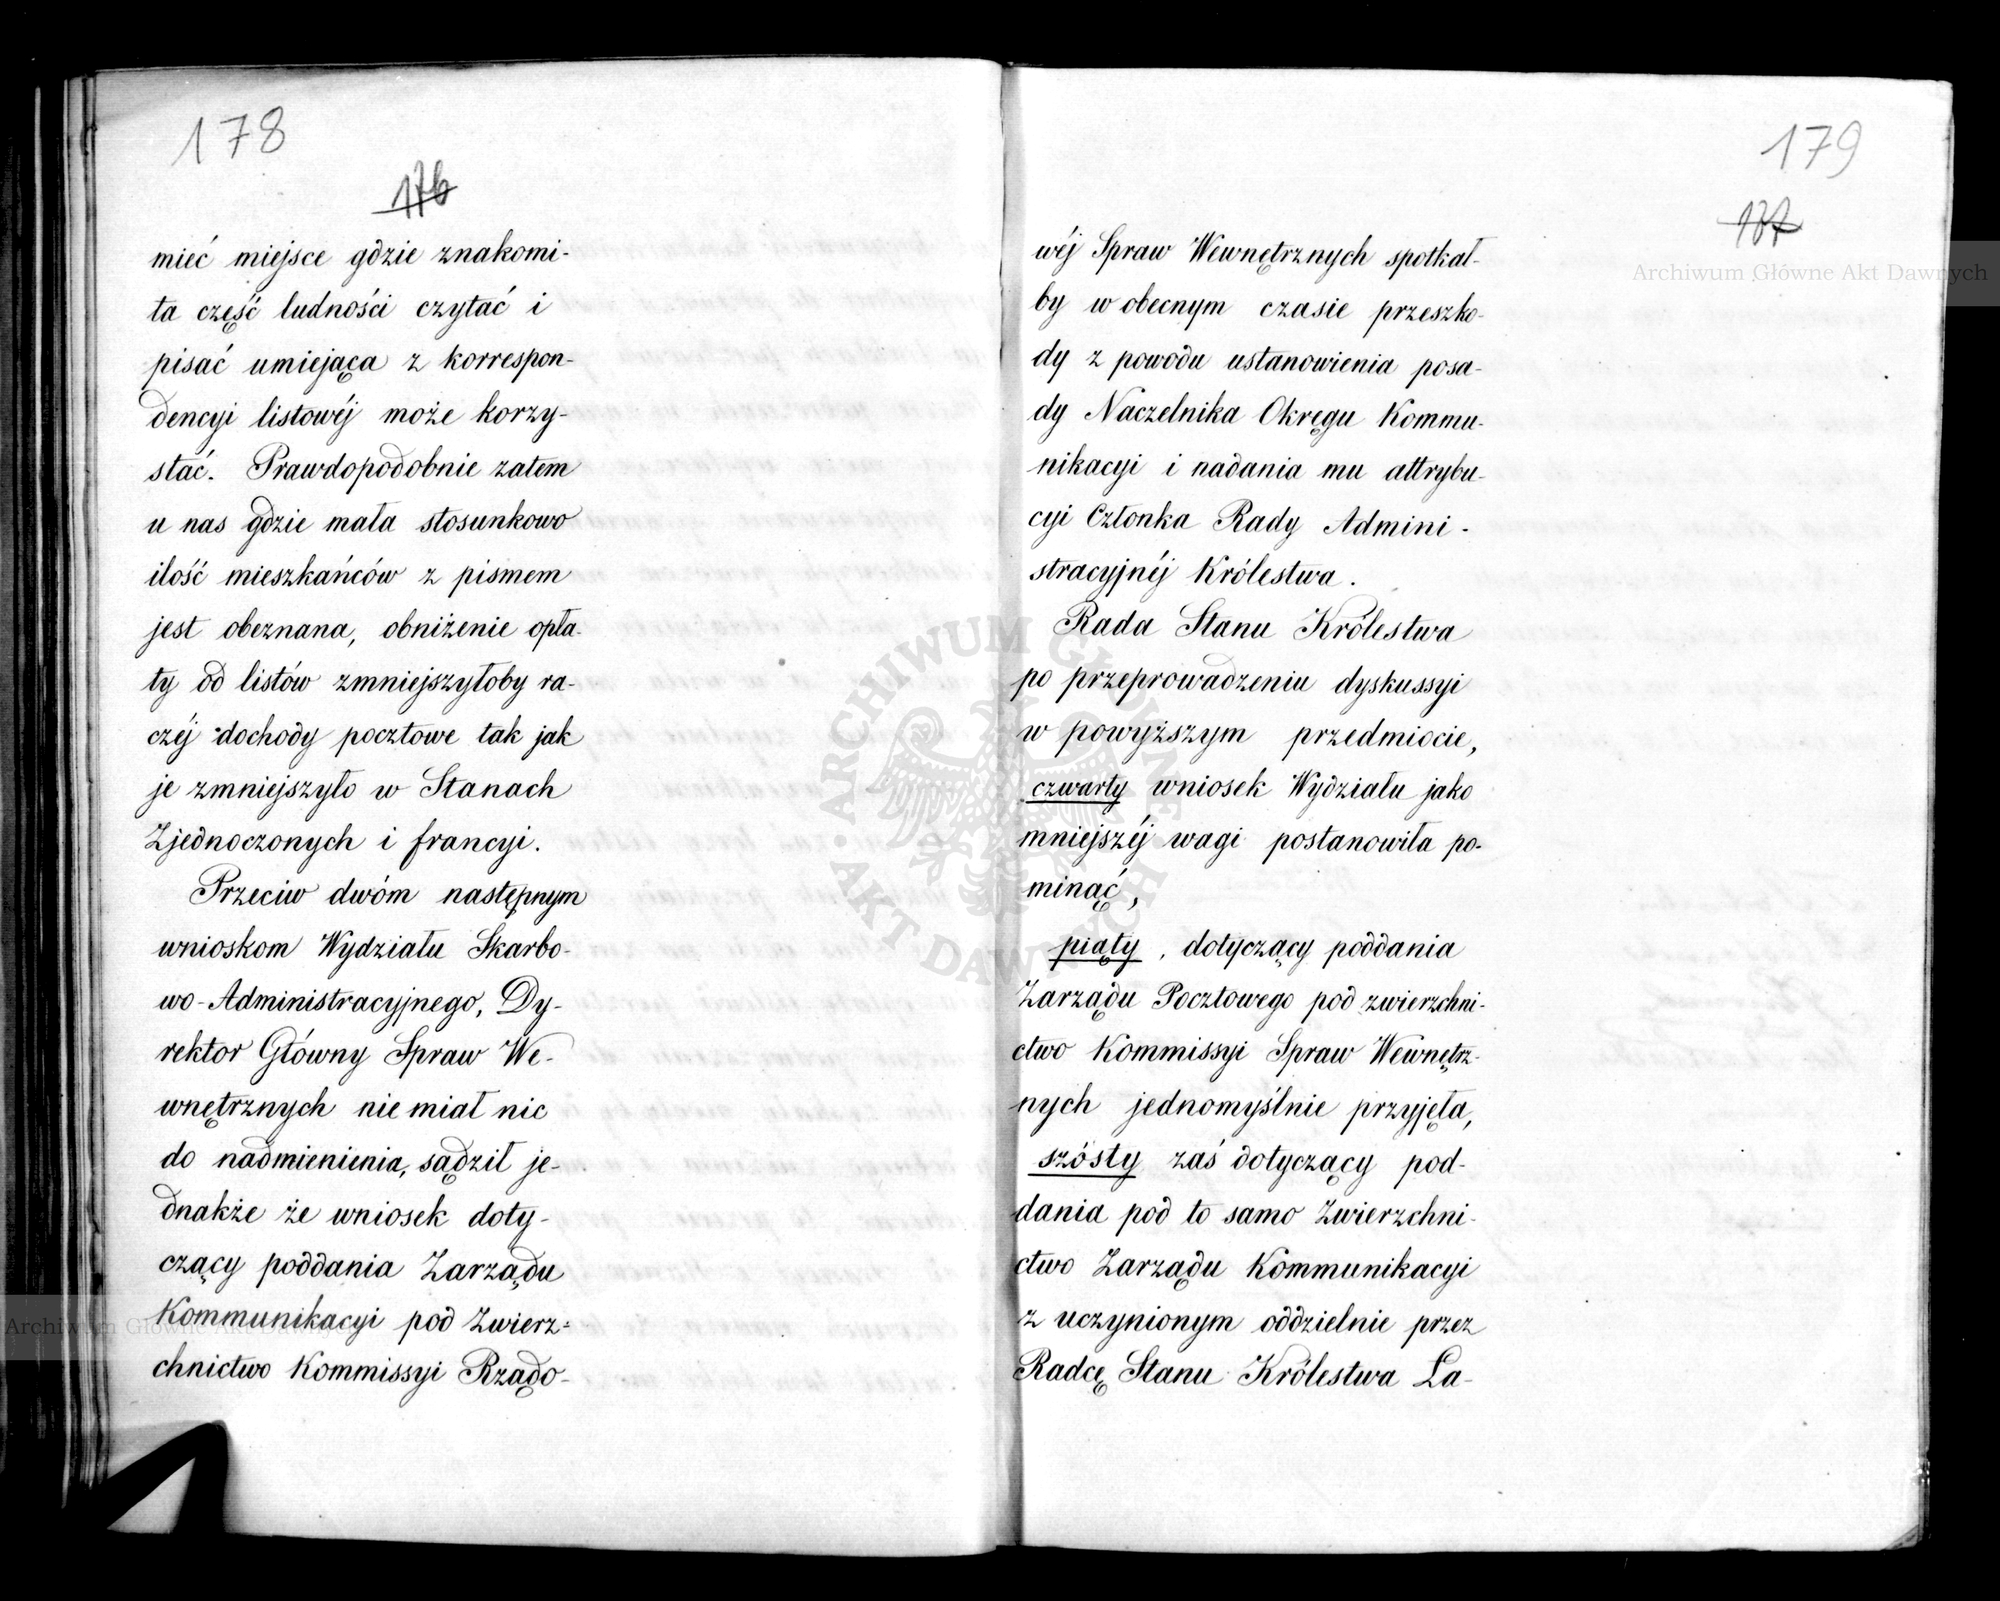 178
176
mieć miejsce gdzie znakomi-
ta część ludności czytać i
pisać umiejąca z korrespon-
dencyi listowéj może korzy-
stać. Prawdopodobnie zatem
u nas gdzie mała stosunkowo
ilość mieszkańców z pismem
jest obeznana, obniżenie opła-
ty od listów zmniejszyłoby ra-
czéj dochody pocztowe tak jak
je zmniejszyło w Stanach
Zjednoczonych i francyi.
Przeciw dwóm następnym
wnioskom Wydziału Skarbo-
wo-Administracyjnego, Dy-
rektor Główny Spraw We-
wnętrznych nie miał nic
do nadmienienia, sądził je-
dnakże że wniosek doty-
czący poddania Zarządu
Kommunikacyi pod Zwierz-
chnictwo Kommissyi Rządo-
179
177
wéj Spraw Wewnętrznych spotkał-
by w obecnym czasie przeszko-
dy z powodu ustanowienia posa-
dy Naczelnika Okręgu Kommu-
nikacyi i nadania mu attrybu-
cyi Członka Rady Admini-
stracyjnéj Królestwa.
Rada Stanu Królestwa
po przeprowadzeniu dyskussyi
w powyższym przedmiocie,
czwarty wniosek Wydziału jako
mniejszéj wagi postanowiła po-
minąć,
piąty, dotyczący poddania
Zarządu Pocztowego pod zwierzchni-
ctwo Kommissyi Spraw Wewnętrz-
nych jednomyślnie przyjęła,
szósty zaś dotyczący pod-
dania pod to samo Zwierzchni-
ctwo Zarządu Kommunikacyi
z uczynionym oddzielnie przez
Radcę Stanu Królestwa Ła-
Archiwum Główne Akt Dawnych
ARCHIWUM GŁÓWNE AKT DAWNYCH
Archiwum Główne Akt Dawnych